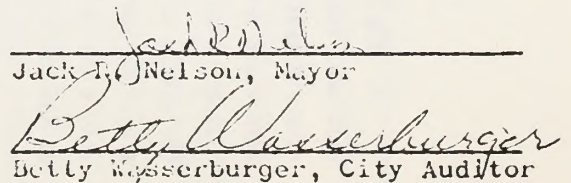 Jack R. Nelson, Mayor
Betty Wasserburger
Betty Wasserburger, City Auditor